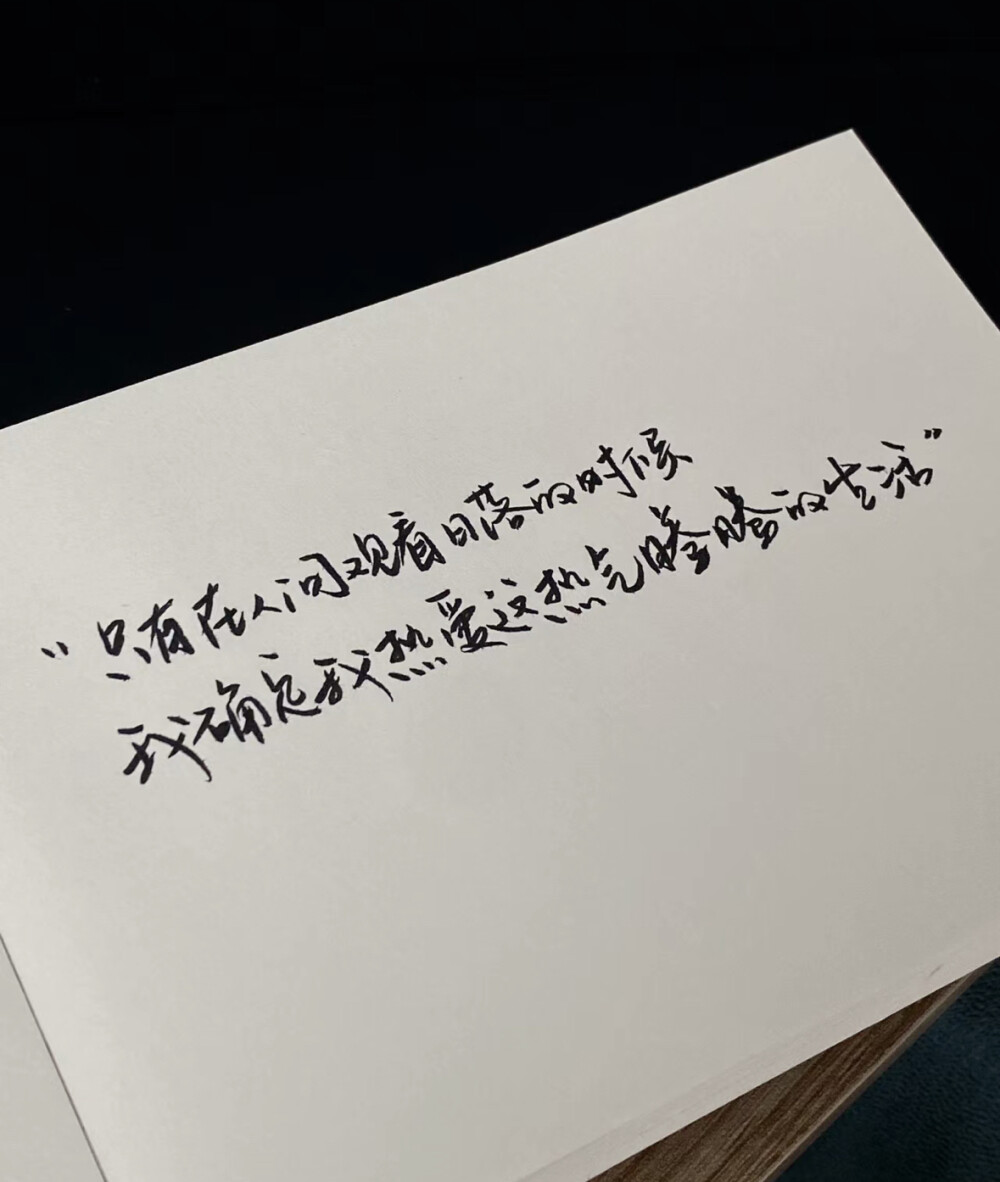 “只有在人间观看日落的时候
我确定我热爱这热气腾腾的生活”